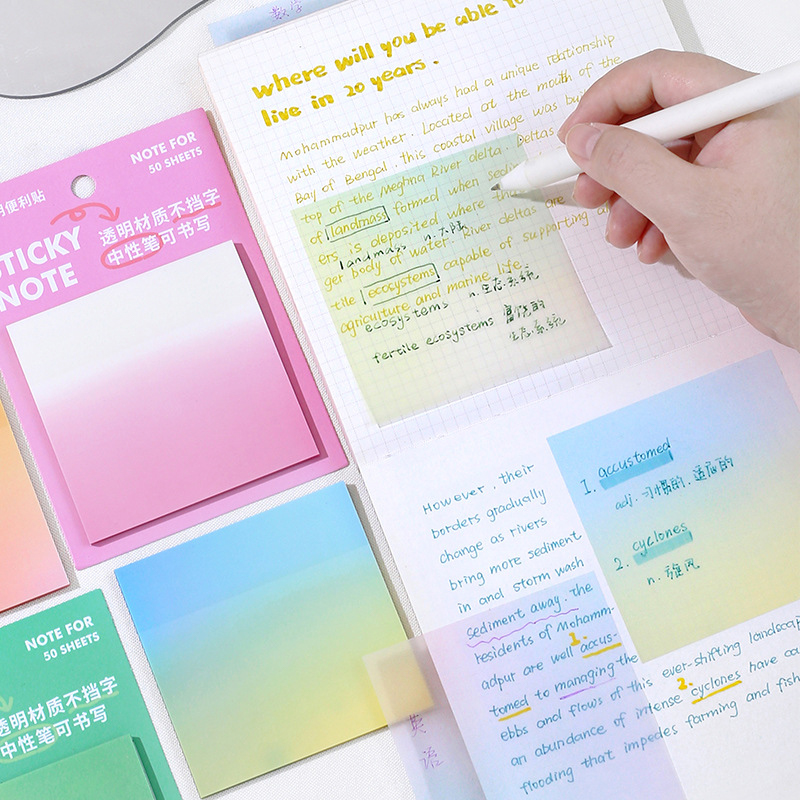 数学
where will you be able to
live in 20 years.
Mohammadpur has always had a unique relationship
with the weather. Located at the mouth of the
Bay of Bengal, this coastal village was
top of the Meghna River delta. Deltas
of landmass formed when
ers is deposited where
landmass n.大陆
ger body of water. River deltas are
tile ecosystems capable of supporting
agriculture and marine life.
ecosystems n.生态系统
fertile ecosystems 富饶的
生态系统
NOTE FOR
50 SHEETS
便利贴
透明材质不挡字
中性笔可书写
STICKY
NOTE
1. accustomed
adj. 习惯的.适应的
2. cyclones
n. 旋风
However, their
borders gradually
change as rivers
bring more sediment
in and storm wash
sediment away. The
residents of Mohamm-
1.
adpur are well accus-
tomed to managing the
ebbs and flows of this ever-shifting landscap
2.
an abundance of intense cyclones have
flooding that impedes farming and fish
英语
NOTE FOR
50 SHEETS
透明材质不挡字
中性笔可书写